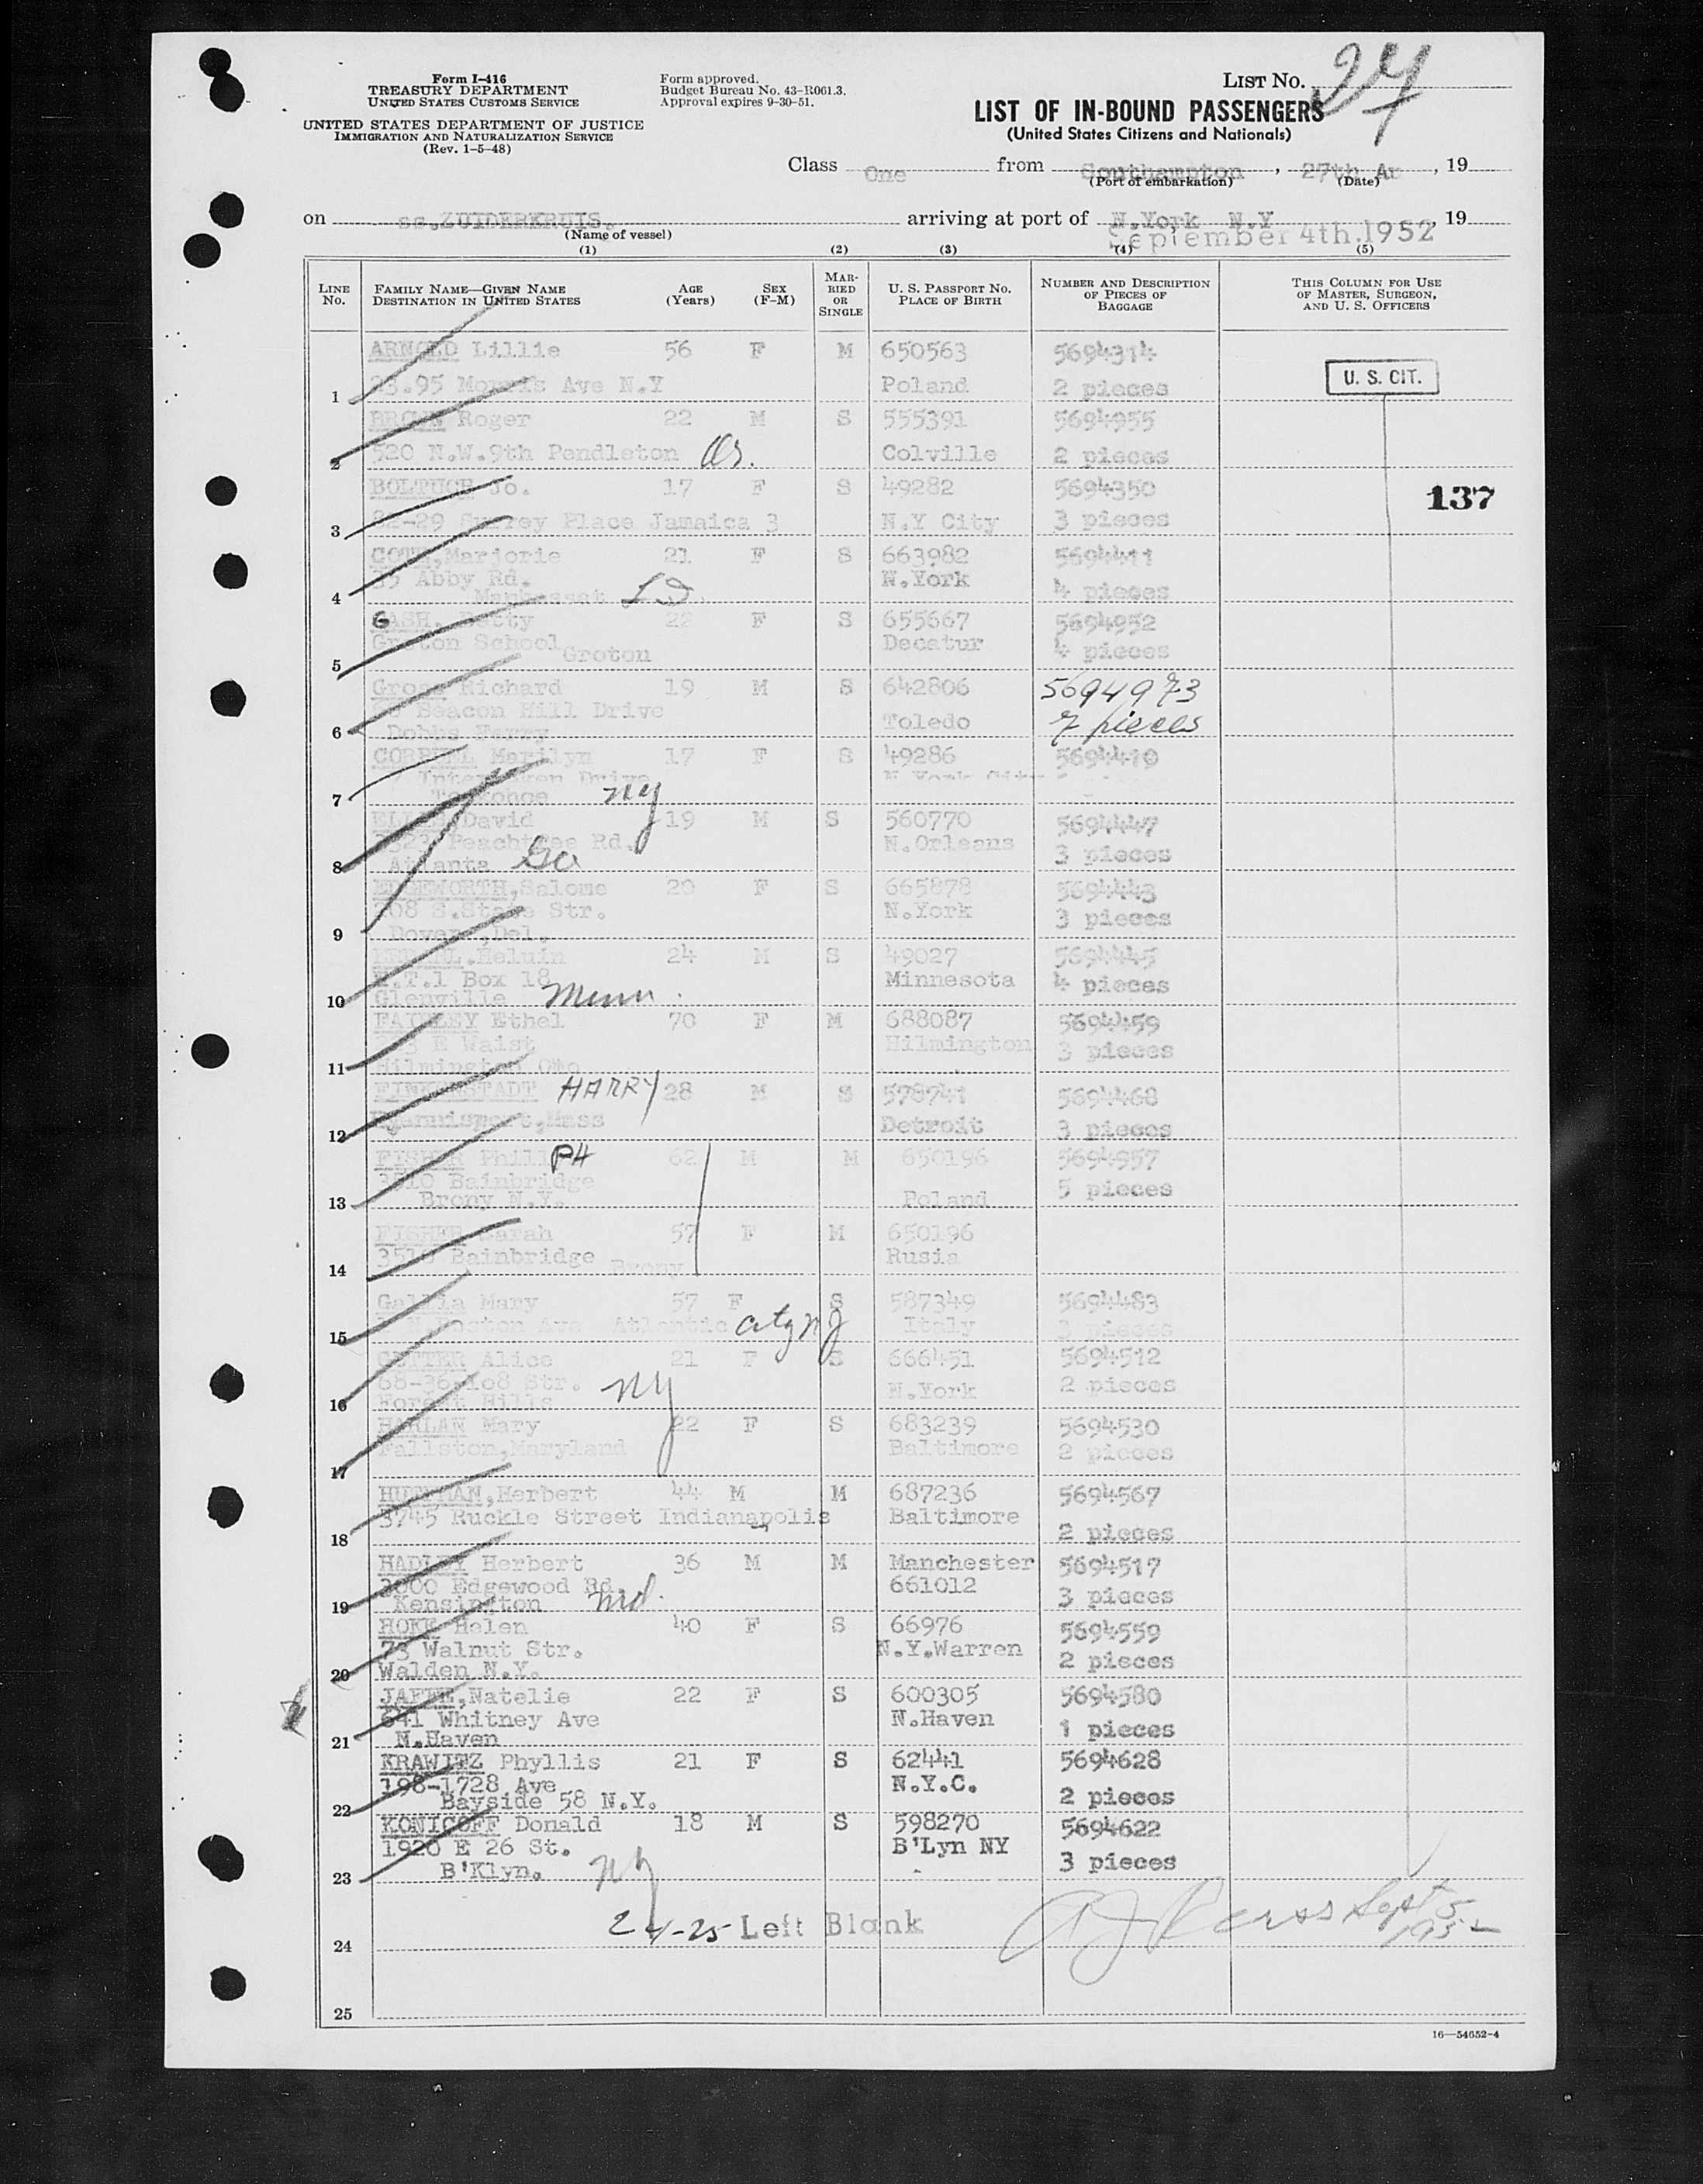 Form I-416
TREASURY DEPARTMENT
UNITED STATES CUSTOMS SERVICE
UNITED STATES DEPARTMENT OF JUSTICE
IMMIGRATION AND NATURALIZATION SERVICE
(Rev. 1-5-48)
Form approved.
Budget Bureau No. 43-R061.3.
Approval expires 9-30-51.
LIST No. 27
LIST OF IN-BOUND PASSENGERS
(United States Citizens and Nationals)
Class One from Southampton, 27th Au, 19
(Port of embarkation) (Date)
on ss.ZUIDERKRUIS. arriving at port of N.York N.Y, 19
September 4th.1952
(Name of vessel)
(1) (2) (3) (4) (5)
LINE No. FAMILY NAME—GIVEN NAME DESTINATION IN UNITED STATES AGE (Years) SEX (F-M) MARRIED OR SINGLE U. S. PASSPORT NO. PLACE OF BIRTH NUMBER AND DESCRIPTION OF PIECES OF BAGGAGE THIS COLUMN FOR USE OF MASTER, SURGEON, AND U. S. OFFICERS
ARNOLD Lillie 56 F M 650563 5694314
1 23.95 Morris Ave N.Y Poland 2 pieces U. S. CIT.
BROWN Roger 22 M S 555391 5694955
2 520 N.W.9th Pendleton Or. Colville 2 pieces
Jo. 17 F S 49282 5694350 137
3 82-29 Surrey Place Jamaica 3 N.Y City 3 pieces
Marjorie 21 F S 663982 5694411
35 Abby Rd. N.York
4 Manhasset 4 pieces
GASH. Betty 22 F S 655667 5694952
Groton School Decatur
5 Groton 4 pieces
Gross Richard 19 M S 642806 5694973
Beacon Hill Drive Toledo 7 pieces
6 Dobbs Ferry
Marilyn 17 F S 49286 5694410
Drive N York City
7 ny
David 19 M S 560770 5694447
Peachtree Rd. N.Orleans
8 Atlanta Ga 3 pieces
EDGEWORTH,Salome 20 F S 665878 5694443
208 S.State Str. N.York 3 pieces
9 Dover,Del.
Heluin 24 M S 49027 5694445
R.T.1 Box 18 Minnesota 4 pieces
10 Glenville Minn.
FARLEY Ethel 70 F M 688087 5694459
E Waist Hilmington 3 pieces
11 Hilmington
FINKENSTADT HARRY 28 M S 578741 5694468
12 Hyannisport,Mass Detroit 3 pieces
FISHER Phill PH 62 M M 650196 5694957
3510 Bainbridge 5 pieces
13 Brony N.Y. Poland
FISHER Sarah 57 F M 650196
3510 Bainbridge Brony Rusia
14
Gallia Mary 57 F S 587349 5694483
15 Ave Atlantic City NJ Italy pieces
Alice 21 F S 666451 5694512
68-36-108 Str. ny N.York 2 pieces
16 Forest Hills
HARLAN Mary 22 F S 683239 5694530
17 Fallston,Maryland Baltimore 2 pieces
Herbert 44 M M 687236 5694567
18 3745 Ruckle Street Indianapolis Baltimore 2 pieces
HADLEY Herbert 36 M M Manchester 5694517
3000 Edgewood Rd. 661012 3 pieces
19 Kensington Md.
HOKE Helen 40 F S 66976 5694559
73 Walnut Str. N.Y.Warren 2 pieces
20 Walden N.Y.
JAFFE,Natelie 22 F S 600305 5694580
641 Whitney Ave N.Haven 1 pieces
21 N.Haven
KRAWITZ Phyllis 21 F S 62441 5694628
198-1728 Ave N.Y.C.
22 Bayside 58 N.Y. 2 pieces
KONICOFF Donald 18 M S 598270 5694622
1920 E 26 St. B'Lyn NY
23 B'Klyn. ny 3 pieces
24-25 Left Blank Sept 5 1952
24
25
16—54652-4